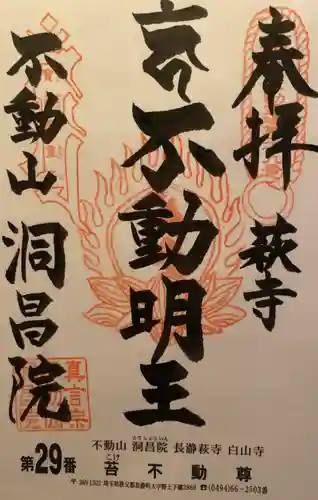 奉拝
萩寺
不動明王
不動山
洞昌院
真言宗
不動山 洞昌院 長瀞萩寺 白山寺
第29番 苔不動尊
〒369-1302 埼玉県秩父郡長瀞町大字野上下郷2868 ☎(0494)66-2503番